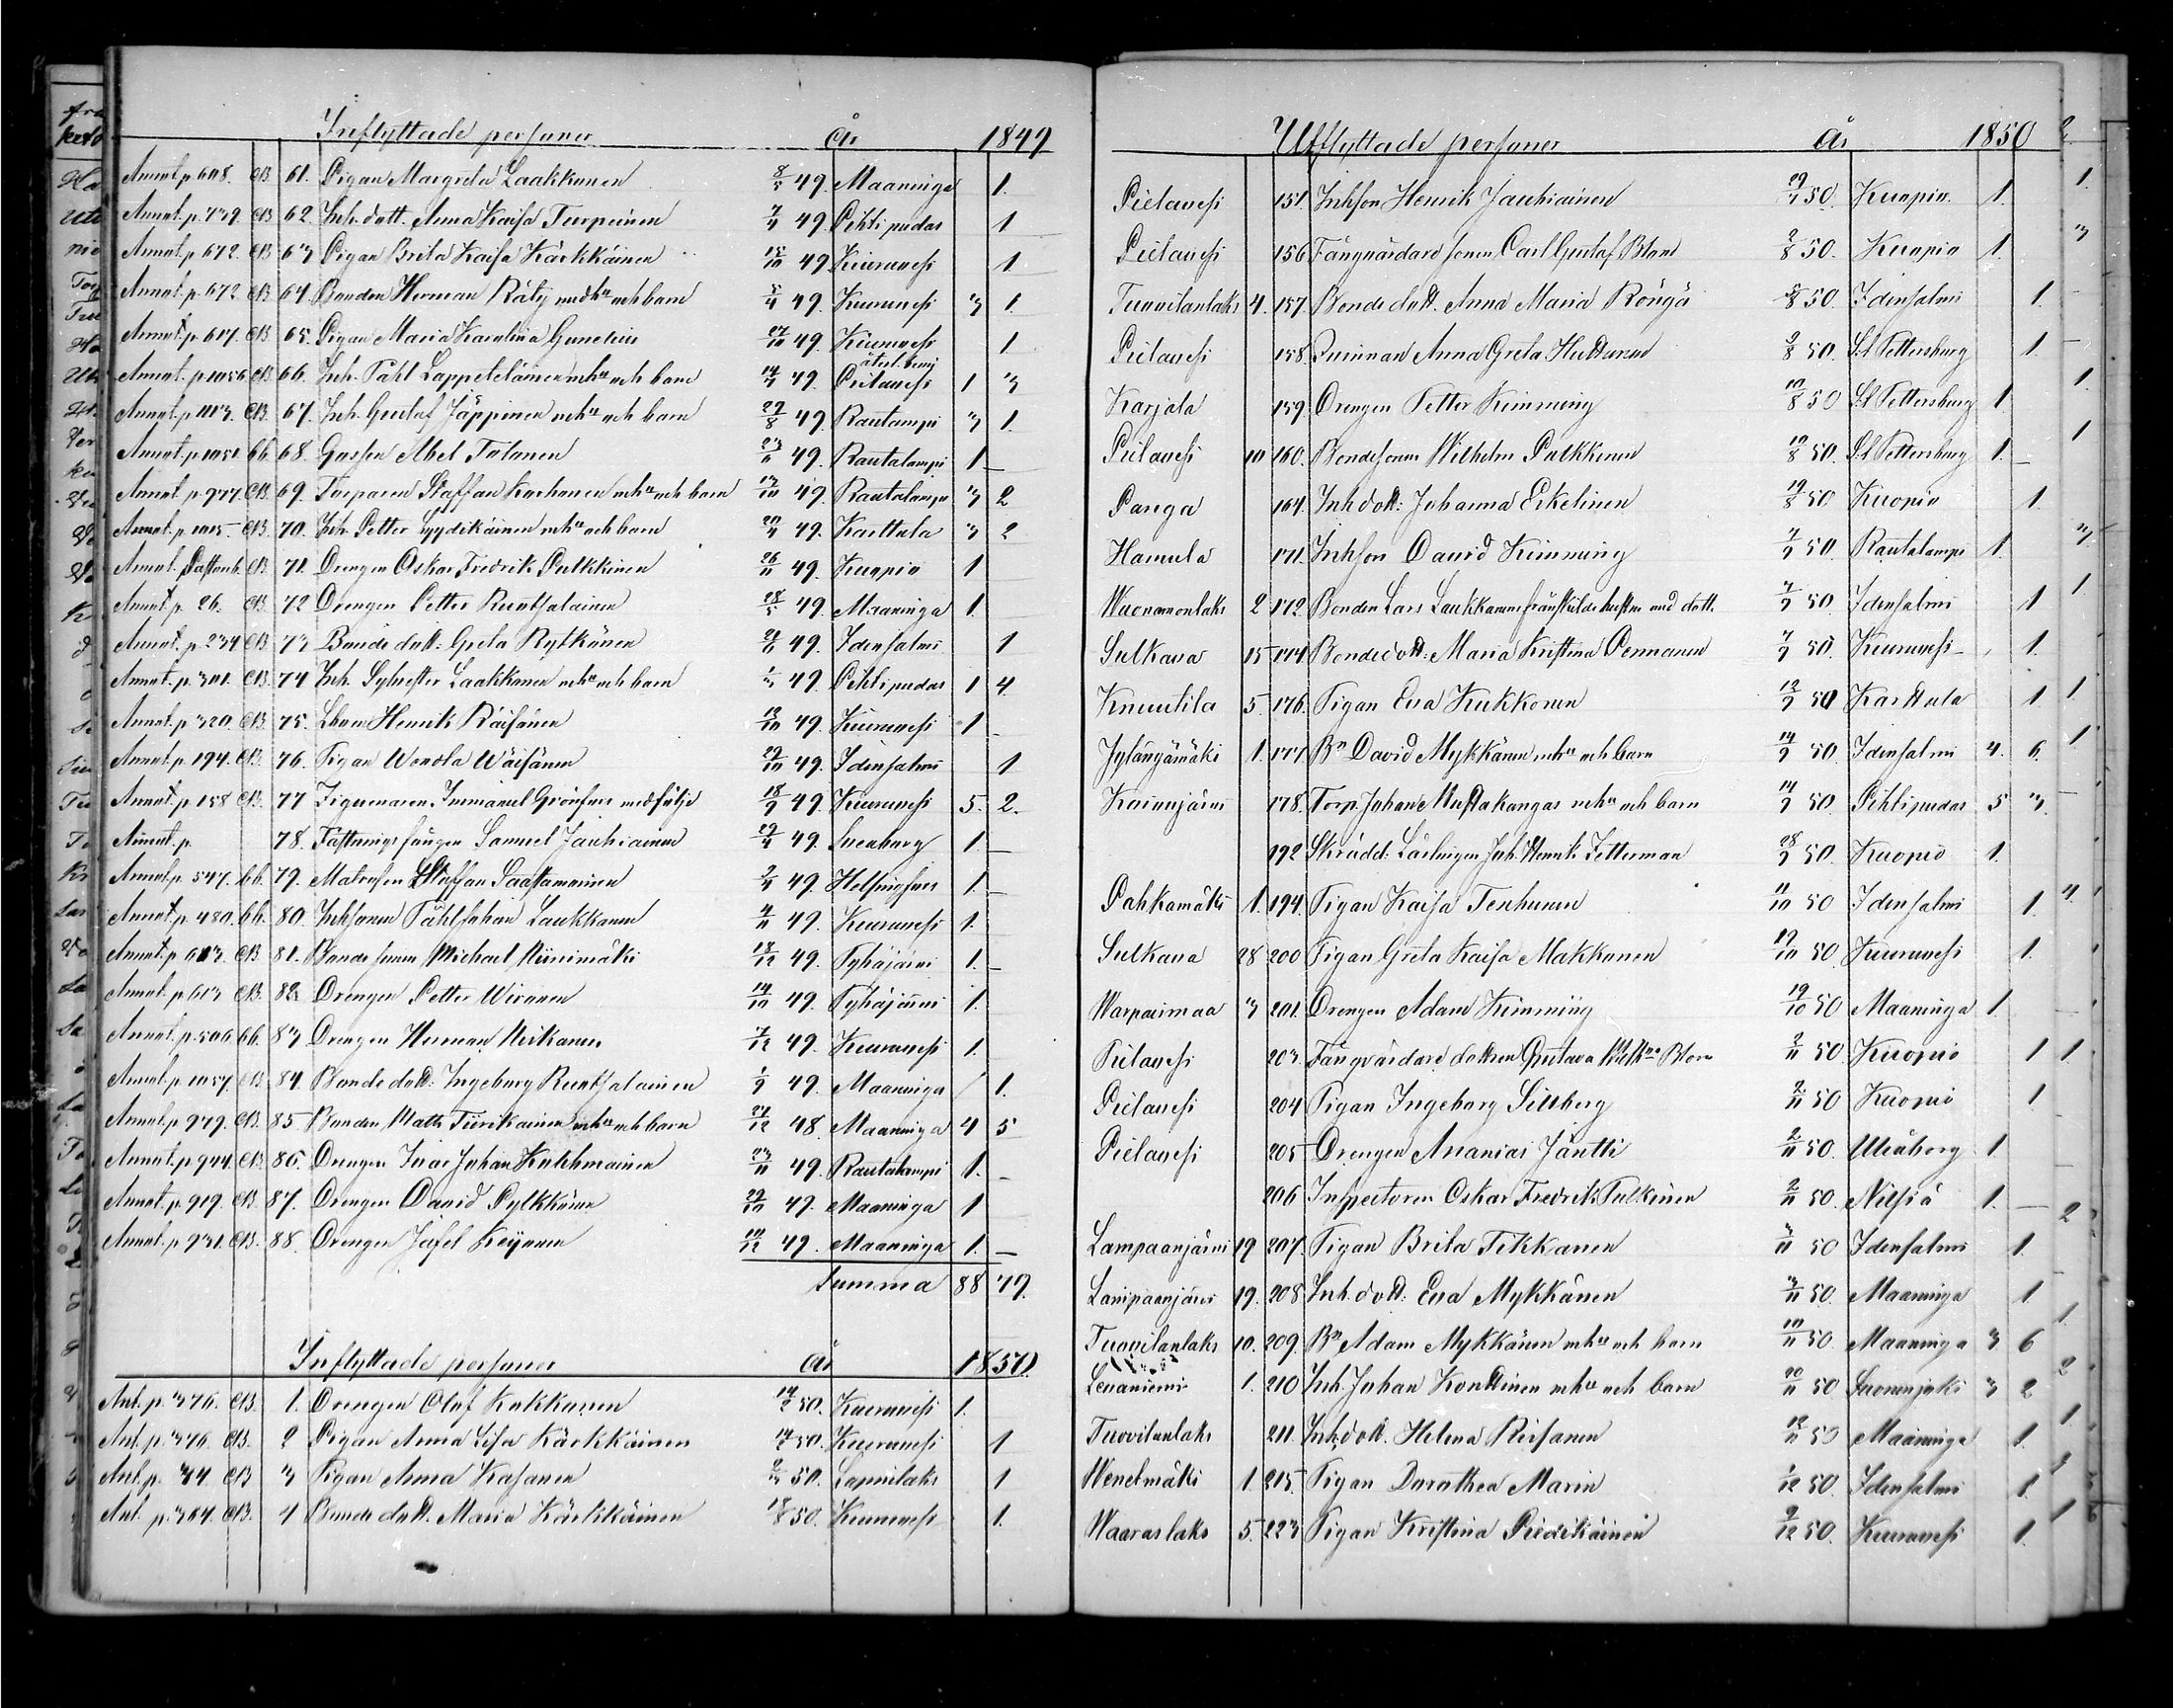 Inflyttade personer år 1849
Annot. p. 608. CB. 61. Pigan Margreta Laakkonen 8/5 49. Maaninga 1.
Annot. p. 739. CB 62. Inh. dott. Anna Kaisa Turpeinen 7/11 49. Pihtipudas 1
Annot. p. 672. CB 63 Pigan Brita Kaisa Kärkkäinen 49 Kiuruvesi 1
Annot. p. 672 CB 64. Bonden Herman Räty med hu och barn 49. Kiuruvesi 3 1
Annot. p. 617. CB 65. Pigan Maria Karolina Gunelius 27/10 49. Kiuruvesi 1
Annot. p. 1056 CB 66. Inh. Påhl Lappeteläinen m hu och barn 49. Pielavesi 1 3
Annot. p. 1113. CB. 67. Inh. Gustaf Jäppinen m hu och barn 29/8 49. Rautalampi 3 1.
Annot. p. 1051 bb. 68. Gossen Abel Tolonen 23/11 49. Rautalampi 1 –
Annot. p. 977. CB. 69. Torparen Staffan Korhonen m hu och barn 13/10 49. Rautalampi 3 2
Annot. p. 1015 CB. 70. Inh. Petter Lyydikäinen m hu och barn 49. Karttula 3 2
Annot. CB 71. Drengen Oskar Fredrik Pulkkinen 26/11 49. Kuopio 1
Annot. p. 26. CB. 72 Drengen Petter Runtsalainen 28/5 49. Maaninga 1.
Annot. p. 234 CB 73 Bonde dott. Greta Rytkönen 49. Idensalmi 1
Annot. p. 301. CB. 74 Inh. Sylvester Laakkonen m hu och barn 49. Pihtipudas 1 4.
Annot. p. 320. CB 75. Henrik Räisänen 13/10 49. Kiuruvesi 1
Annot. p. 194. CB. 76. Pigan Wendla Wäisänen 29/10 49. Idensalmi 1
Annot. p. 158 CB. 77 Immanuel Grönfors med följe 18/9 49. Kiuruvesi 5. 2.
Annot. p. 78. Fästningsfången Samuel Jauhiainen 49. Sveaborg 1 –
Annot. p. 547. bb. 79. Matrosen Staffan Saastamoinen 49. Helsingfors 1. –
Annot. p. 480. bb. 80. Inhsonen Påhl Johan Laukkanen 49. Kiuruvesi 1.
Annot. p. 613. CB 81. Bondesonen Michael Niinimäki 18/12 49. Pyhäjärvi 1. –
Annot. p. 613 CB. 82 Drengen Petter Wiranen 14/10 49. Pyhäjärvi 1.
Annot. p. 506 bb. 83 Drengen Herman Niskanen 7/12 49. Kiuruvesi 1.
Annot. p. 1057. CB 84. Bonde dott: Ingeborg Runtsalainen 1/9 49. Maaninga 1.
Annot. p. 979. CB. 85 Bonden Matts Tiirikainen m hu och barn 27/12 48. Maaninga 4 5
Annot. p. 944. CB. 86. Drengen Ivar Johan Kulehmainen 23/11 49. Rautalampi 1. –
Annot. p. 919. CB. 87. Drengen David Pylkkänen 29/10 49. Maaninga 1
Annot. p. 931. CB. 88. Drengen Jafet Keijonen 10/12 49. Maaninga 1. –
Summa 88 79.
Inflyttade personer år 1850
Ant. p. 376. CB. 1. Drengen Olof Kukkonen 50. Kiuruvesi 1.
Ant. p. 376. CB. 2 Pigan Anna Lisa Kärkkäinen 50. Kiuruvesi 1
Ant. p. CB 3 Pigan Anna Kasanen 50. Lapinlaks 1
Ant. p. 364. CB. 4 Bonde dott. Maria Kärkkäinen 50. Kiuruvesi 1.
Utflyttade personer år 1850
Pielavesi 151. Inhson Henrik Jauhiainen 50. Kuopio 1.
Pielavesi 156 Fångvårdare sonen Carl Gustaf Blom 2/8 50. Kuopio 1
Tuovilanlaks 4. 157. Bonde dott. Anna Maria Röngä 50. Idensalmi 1.
Pielavesi 158. Anna Greta Huttunen 50. S:t Pettersburg 1.
Karjala 159. Drengen Petter Kimming 10/8 50 S:t Pettersburg 1.
Pielavesi 10 160. Bondesonen Wilhelm Pulkkinen 50. S:t Pettersburg 1.
Panga 164. Inh dott: Johanna Eskelinen 19/8 50 Kuopio 1.
Hamula 171. Inhson David Kimming 50. Rautalampi 1.
Wuonamonlaks 2 172. Bonden Lars Laukkanens frånskilde hustru med dott. 50. Idensalmi 1
Sulkava 15 174 Bondedott: Maria Kristina Pennanen 50. Kiuruvesi 1.
Knuutila 5. 176. Pigan Eva Kukkonen 12/9 50 Karttula 1
Jylängämäki 1. 177. Bn David Mykkänen m hu och barn 14/9 50. Idensalmi 4. 6.
Koivujärvi 178. Torp. Johan Mustakangas m hu och barn 14/9 50. Pihtipudas 5 3.
192 Skrädd: Lärlingen Joh. Henrik Zetterman 28/9 50. Kuopio 1.
Pahkamäki 1. 194. Pigan Kaisa Tenhunen 11/10 50 Idensalmi 1.
Sulkava 28 200 Pigan Greta Kaisa Makkonen 50 Kiuruvesi 1.
Warpaismaa 3 201. Drengen Adam Kimming 19/10 50 Maaninga 1
Pielavesi 203. Fångvårdare dottren Gustava Blom 2/11 50 Kuopio 1
Pielavesi 204 Pigan Ingeborg Sillberg 2/11 50 Kuopio 1
Pielavesi 205 Drengen Ananias Jäntti 2/11 50. Uleåborg 1
206 Inspectoren Oskar Fredrik Pulkinen 2/11 50. Nilsiä 1. –
Lampaanjärvi 19 207. Pigan Brita Tikkanen 3/11 50 Idensalmi 1.
Lampaanjärvi 19. 208 Inh. dott: Eva Mykkänen 3/11 50. Maaninga 1.
Tuovilanlaks 10. 209. Bn Adam Mykkänen m hu och barn 10/11 50. Maaninga 3 6
Levaniemi 1. 210 Inh. Johan Konttinen m hu och barn 50 Suonenjoki 3 2
Tuovilanlaks 211. Inh dott. Helena Reisanen 50 Maaninga 1.
Wenetmäki 1 215. Pigan Dorothea Marin 1/12 50. Idensalmi 1.
Waaraslaks 5. 223 Pigan Kristina Piedikäinen 9/12 50. Kiuruvesi 1.